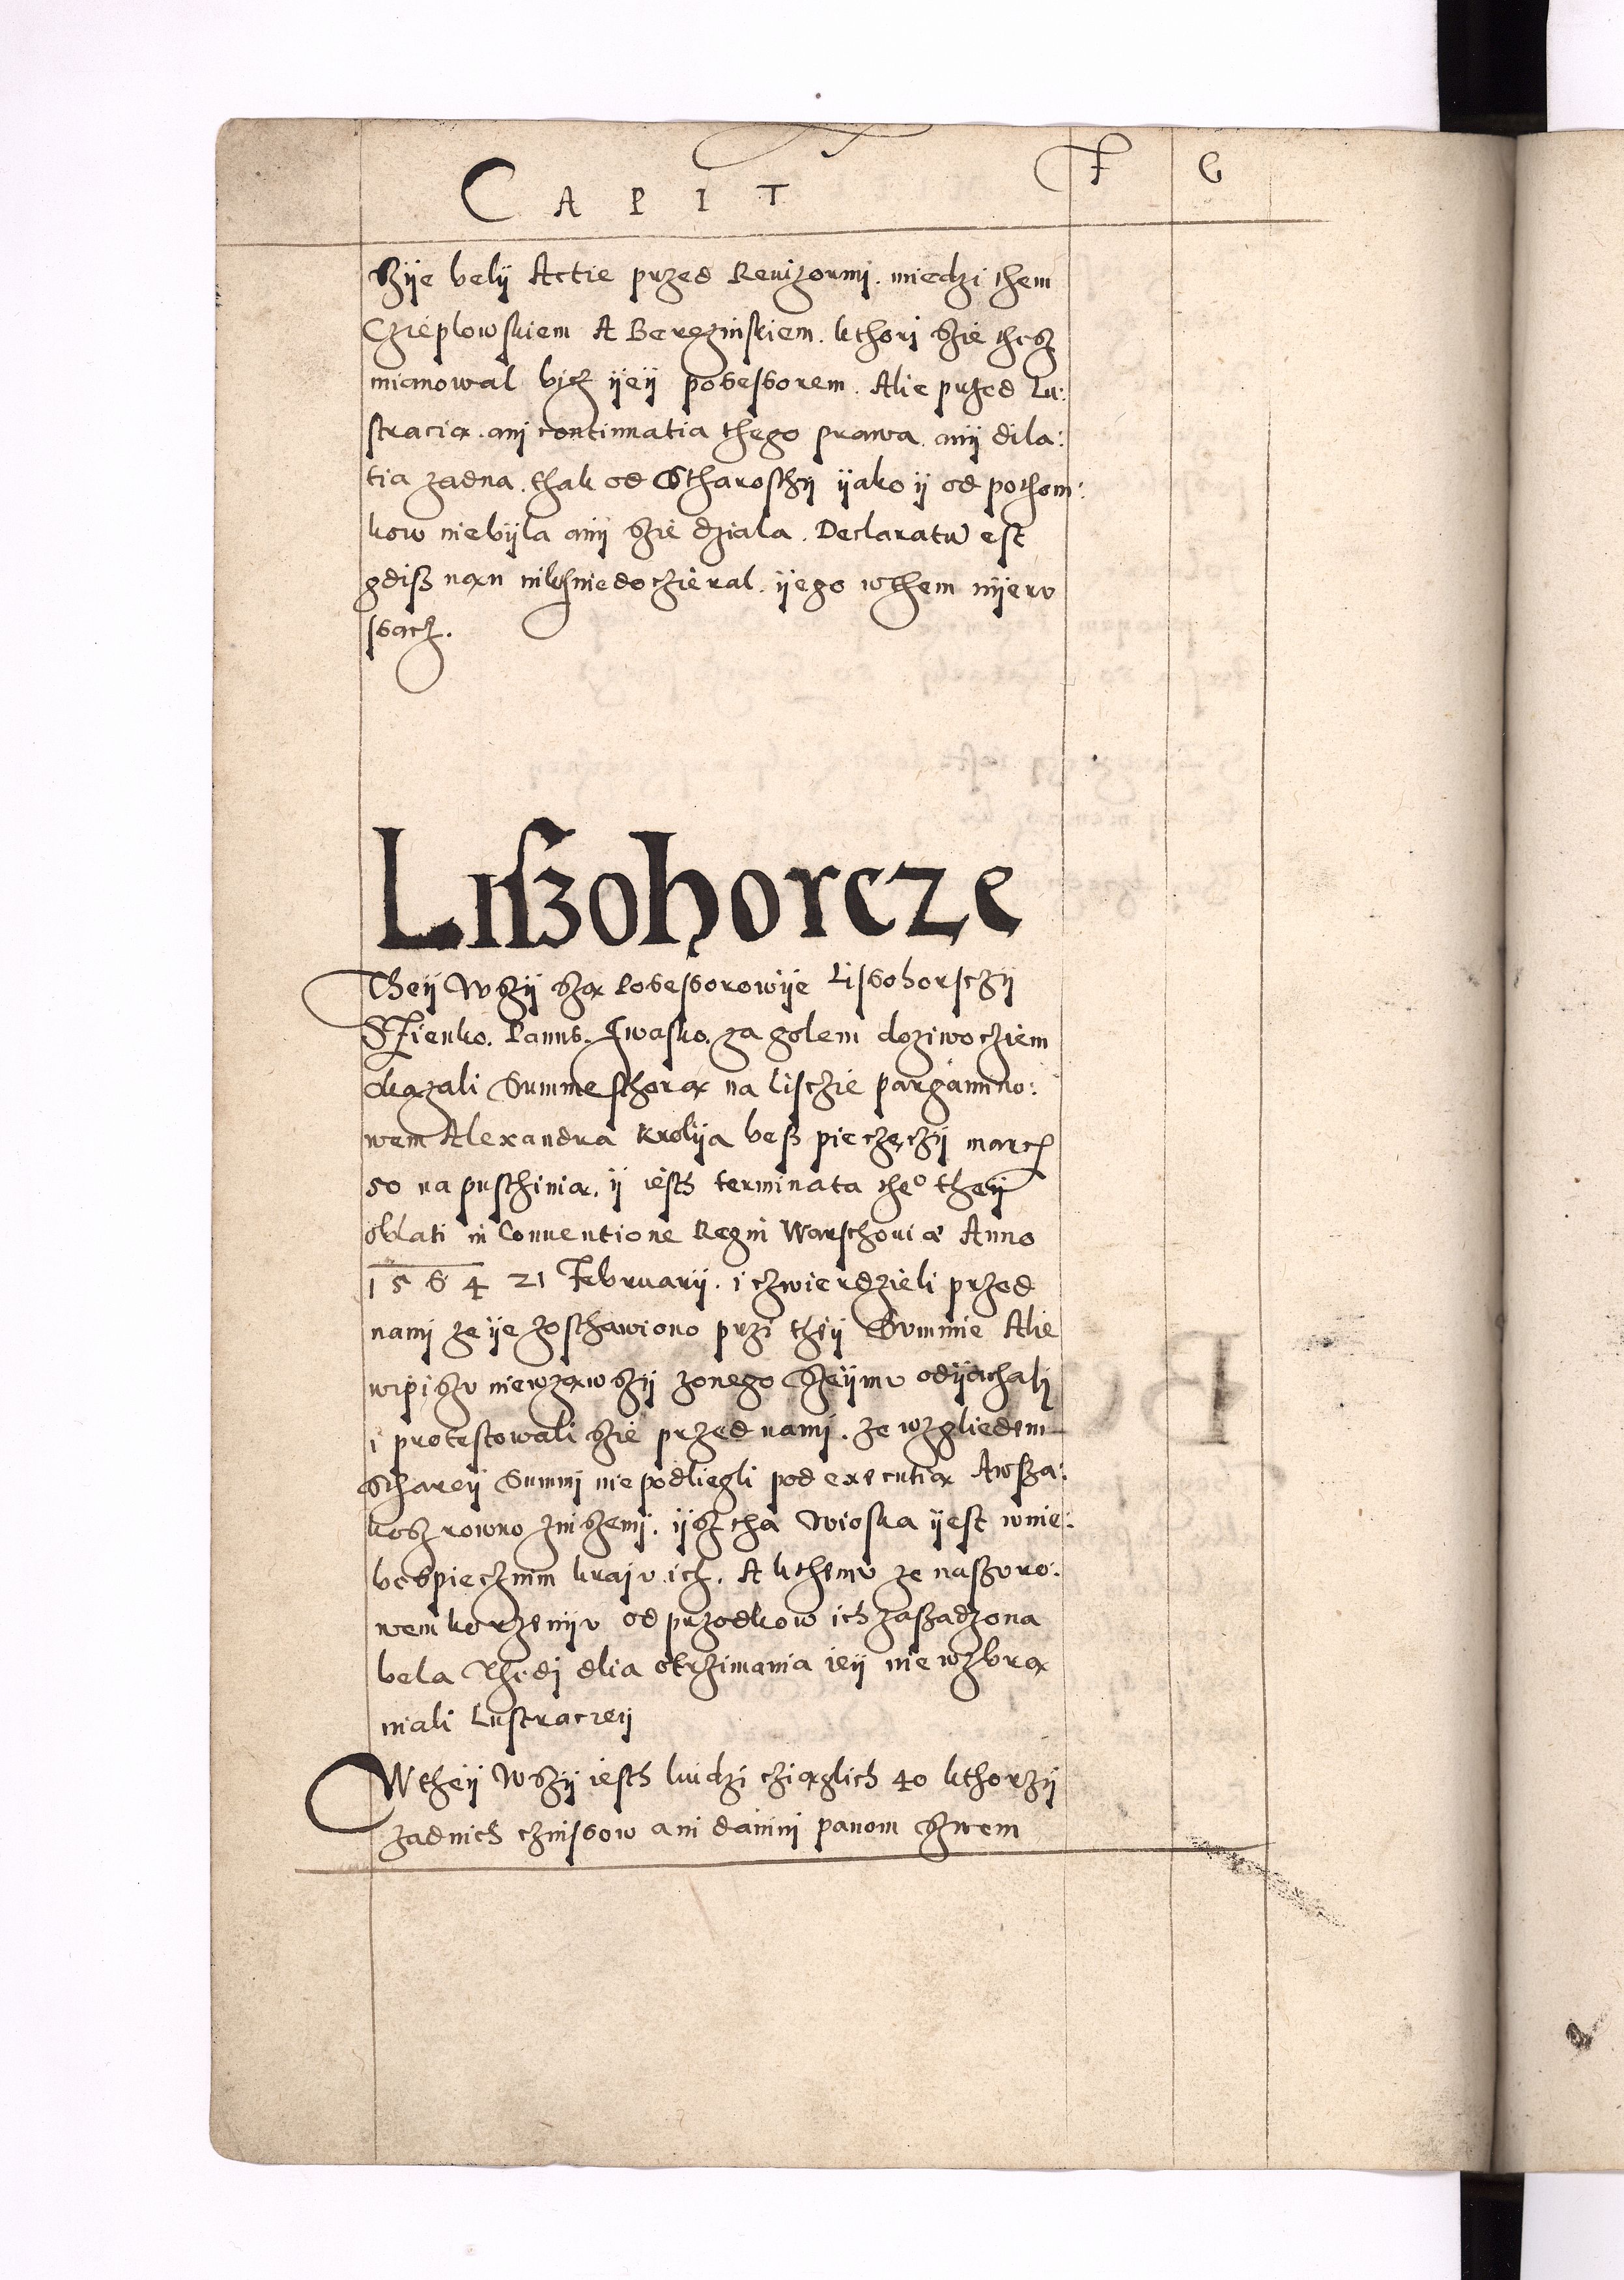 CAPIT F G
Szÿe belÿ Actie przed Reuizormj. miedzi them
Czieplowskiem A Berezinskiem. kthorj Szie thesz
mianowal bÿcz ÿeÿ possessorem. Alie przed Lu:
stracia. anj continuatia thego prawa. anÿ dila:
tia zadna. thak od Stharosthÿ ÿako ÿ od pothom:
kow niebÿla anÿ szie dziala. Declaratũ est
gdiß nan nikth niedoczieral. ÿego wthem nÿerv
ssacz.
Lißohorcze
Theÿ Wszÿ sza Possessorowÿe Lissohorsczÿ
Szienko. Panns. Jwasko. za golem doziwocziem
okazali Summe sthora na lisczie pargamino:
wem Alexandra Krolÿa beß pieczęczÿ marcẽ
50 na pusthinia. ÿ iesth terminata cheº theÿ
oblati in Conuentione Regni Warschouiæ Anno
1564 21 Februarÿ. i czwierdzieli przed
namj ze ÿe zosthawiono przi theÿ Summie Alie
wpiszv niewzawszÿ zonego Szeÿmv odÿachalj
i protestowali szie przed namj. ze wzgliedem
Sthareÿ Summj nie podliegli pod executia Awsza:
kosz rowno zinszemj. ÿsz tha Wioska ÿest wnie:
bespiecznim krajv ich. A kthemv ze naszvro:
wem korzenÿv od przodkow ich zaßadzona
bela Thedj dlia otrzimania ieÿ nie wzbra
niali Lustracieÿ
Wtheÿ Wszÿ iesth ludzi cziaglich 40 kthorzÿ
zadnich czinssow ani daninj panom Szwem